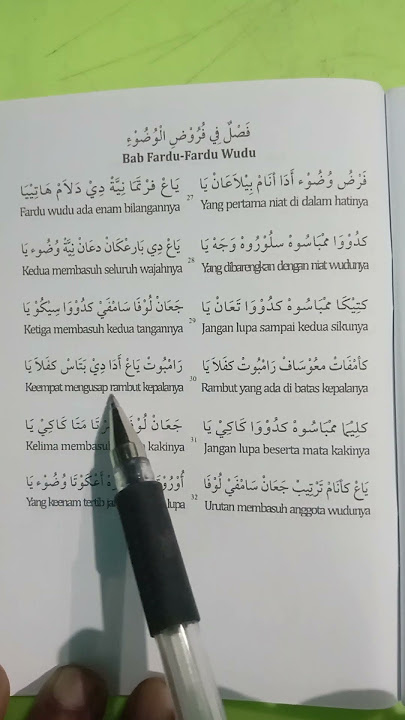 فَصْلٌ فِي فُرُوْضِ الْوُضُوْءِ
Bab Fardu-Fardu Wudu
فَرْضُ وُضُوْء أَدَا أَنَامْ بِيْلَاعَانْ يَا 27 يَاعْ فَرْتَمَا نِيَّةْ دِيْ دَلَامْ هَاتِيْيَا
Fardu wudu ada enam bilangannya Yang pertama niat di dalam hatinya
كَدُوْوَا مَمْبَاسُوهْ سلُوْرُوهْ وَجَهْ يَا 28 يَاعْ دِي بَارْعكَانْ دعَانْ نِيَّةْ وُضُوء يَا
Kedua membasuh seluruh wajahnya Yang dibarengkan dengan niat wudunya
كَتِيْكَا مَمْبَاسُوهْ كدُوْوَا تَعَانْ يَا 29 جَعَانْ لُوْفَا سَامْفَيْ كدُوْوَا سِيْكُوْ يَا
Ketiga membasuh kedua tangannya Jangan lupa sampai kedua sikunya
كَأَمْفَاتْ مَعُوْسَافْ رَامْبُوتْ كفَلَا يَا 30 رَامْبُوتْ يَاعْ أَدَا دِيْ بَتَاسْ كَفَلَا يَا
Keempat mengusap rambut kepalanya Rambut yang ada di batas kepalanya
كَلِيْمَا مَمْبَاسُوهْ كدُوْوَا كَاكِيْ يَا 31 جَعَانْ مَتَا كَاكِيْ يَا
Kelima kakinya Jangan lupa beserta mata kakinya
يَاعْ كَأَنَامْ تَرْتِيبْ جَعَانْ سَامْفَيْ لُوْفَا 32 أَعْكَوْتَا وُضُوْء يَا
Yang keenam tertib lupa Urutan membasuh anggota wudunya